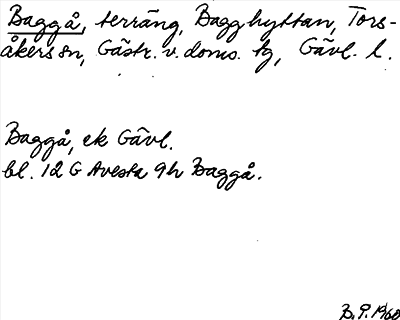 Baggå, terräng, Bagghyttan, Tors-
åkers sn, Gästr. v. doms. tg, Gävl. l.
Baggå, ek Gävl.
bl. 12 G Avesta 9h Baggå.
B. P. 1960